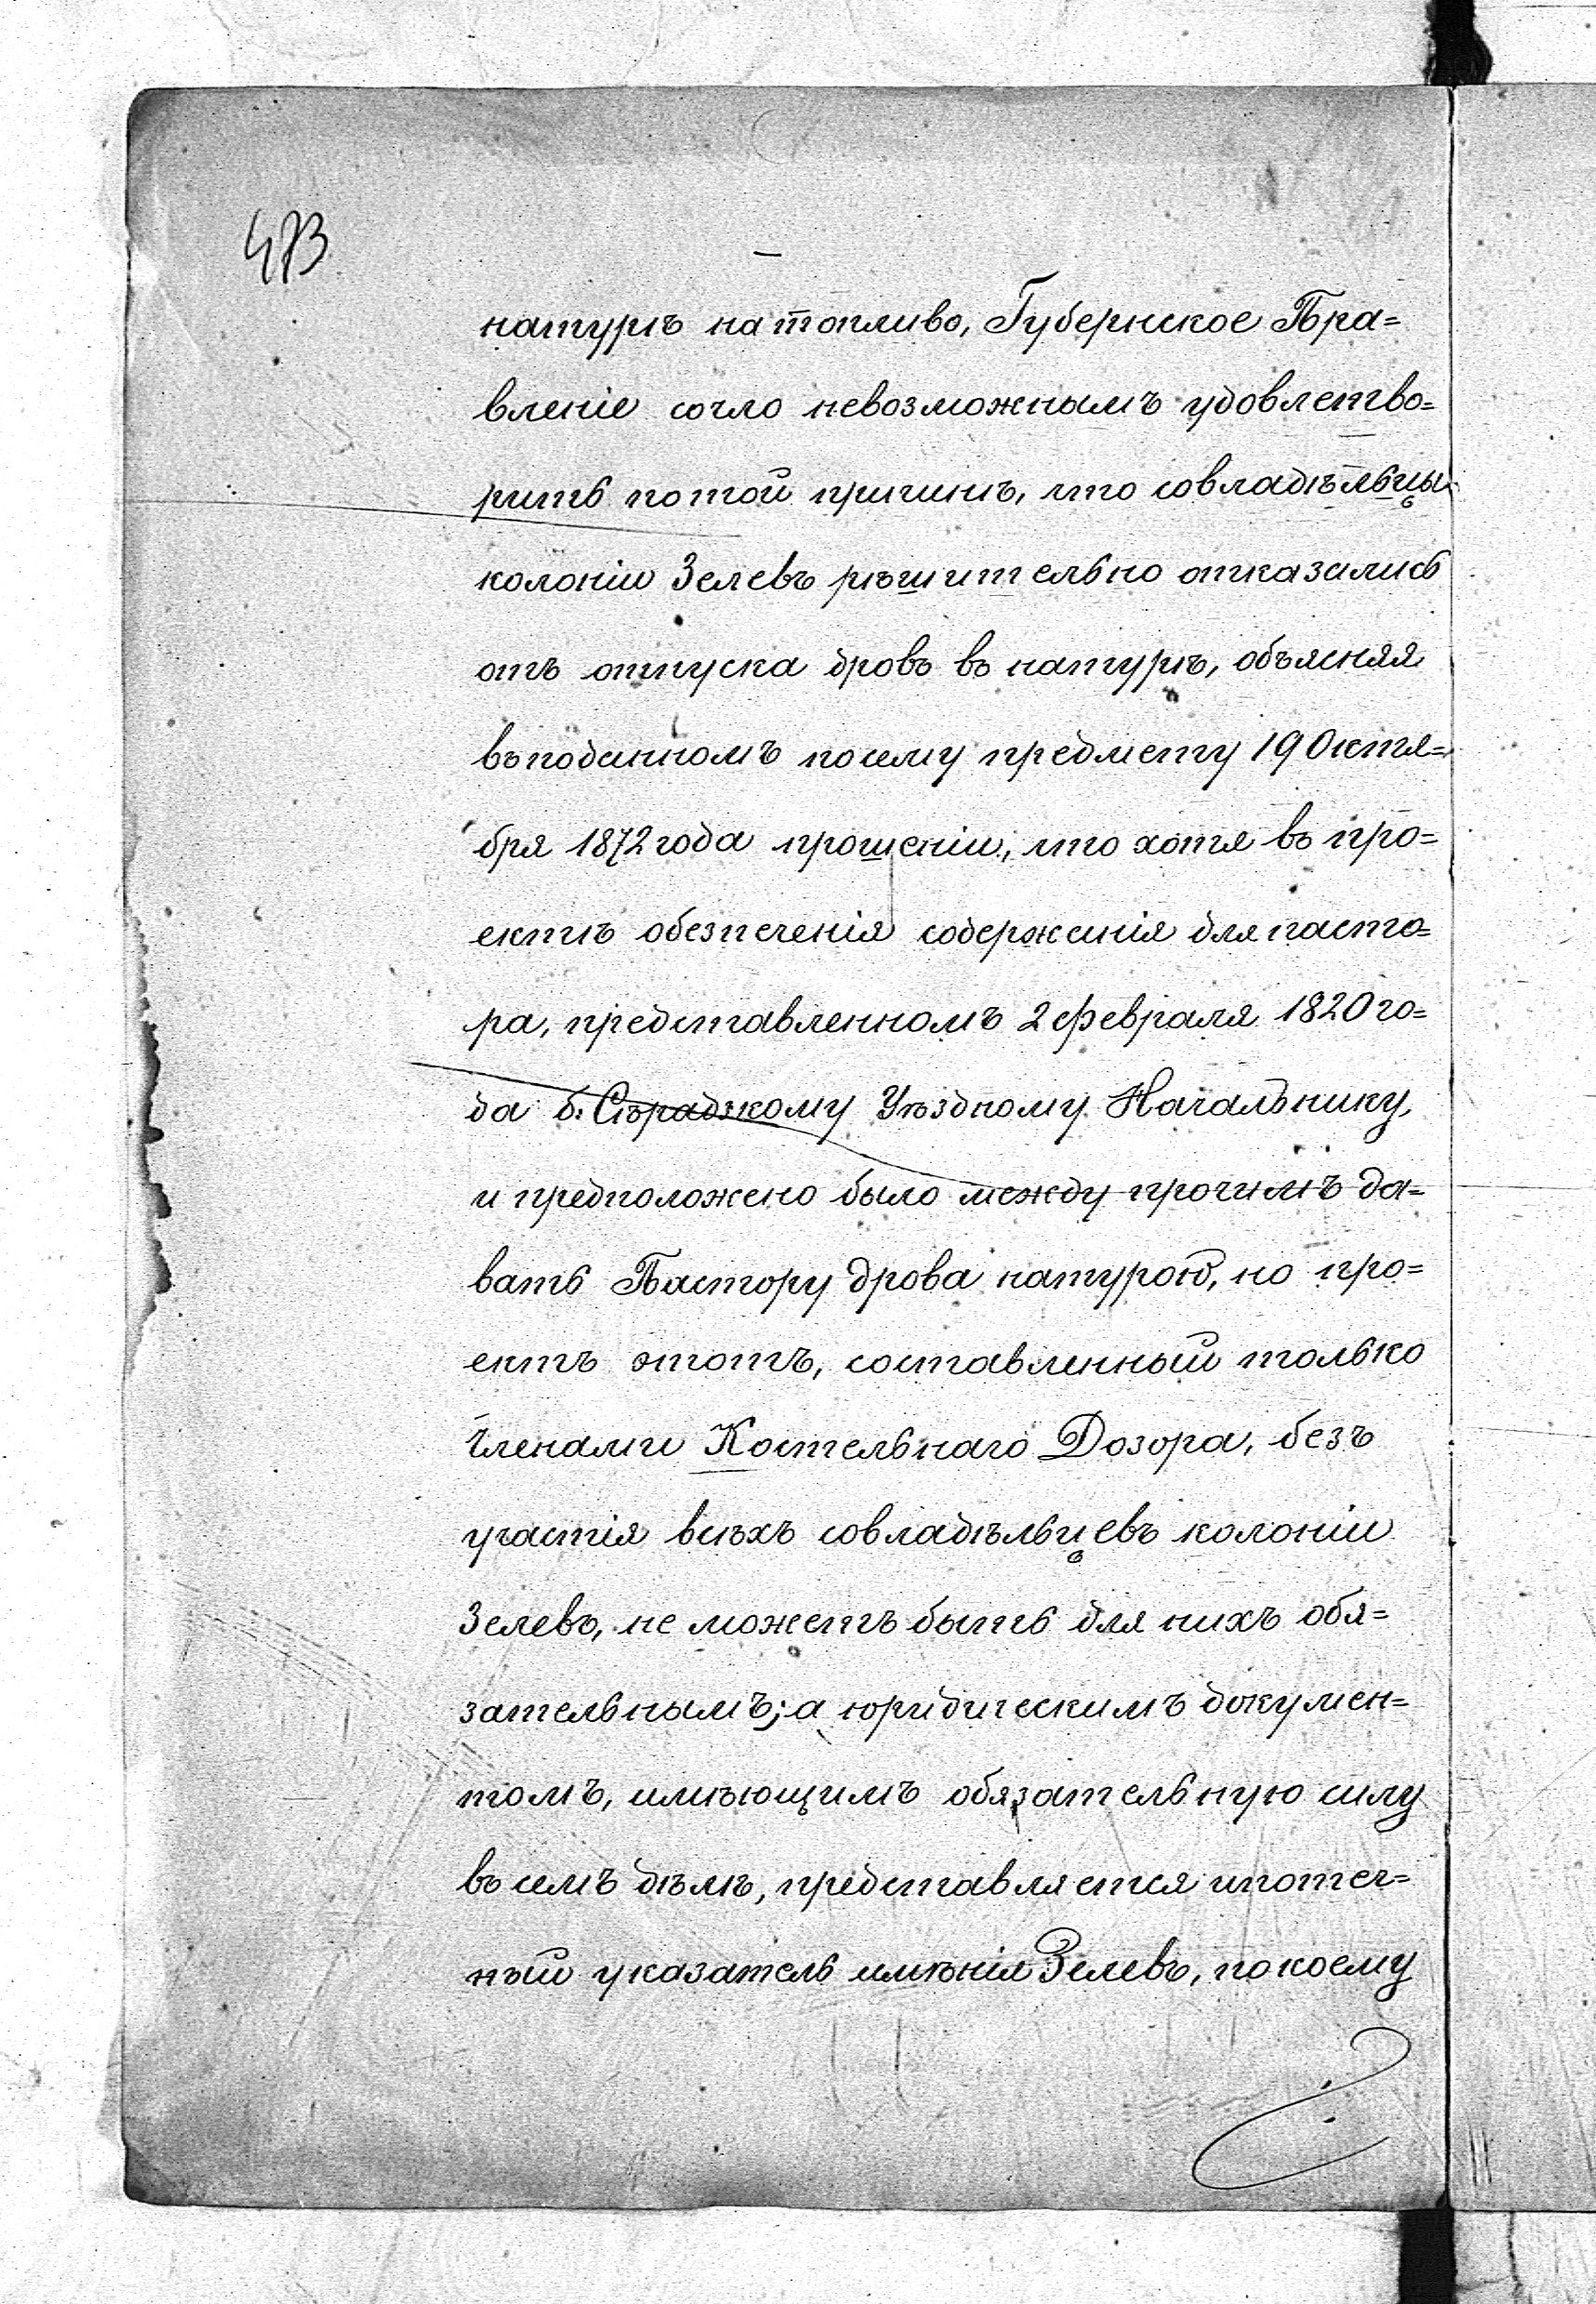 473
натурѣ на топливо, Губернское Пра=
вленіе сочло невозможнымъ удовлетво=
рить по той причинѣ, что совладѣльцы
колоніи Зелевъ рѣшительно отказались
отъ отпуска дровъ въ натурѣ, объясняя
въ поданномъ по сему предмету 19 Октя=
бря 1872 года прошеніи, что хотя въ про=
ектѣ обезпеченія содержанія для пасто=
ра, представленномъ 2 февраля 1820 го=
да б. Сѣрадзкому Уѣздному Начальнику
и предположено было между прочимъ да=
вать Пастору дрова натурою, но про=
ектъ этотъ, составленный только
членами Костельнаго Дозора, безъ
участія всѣхъ совладѣльцевъ колоніи
Зелевъ, не можетъ быть для нихъ обя=
зательнымъ; а юридическимъ докумен=
томъ, имѣющимъ обязательную силу
въ семъ дѣлѣ, представляется ипотеч=
ный указатель имѣнія Зелевъ, по коему